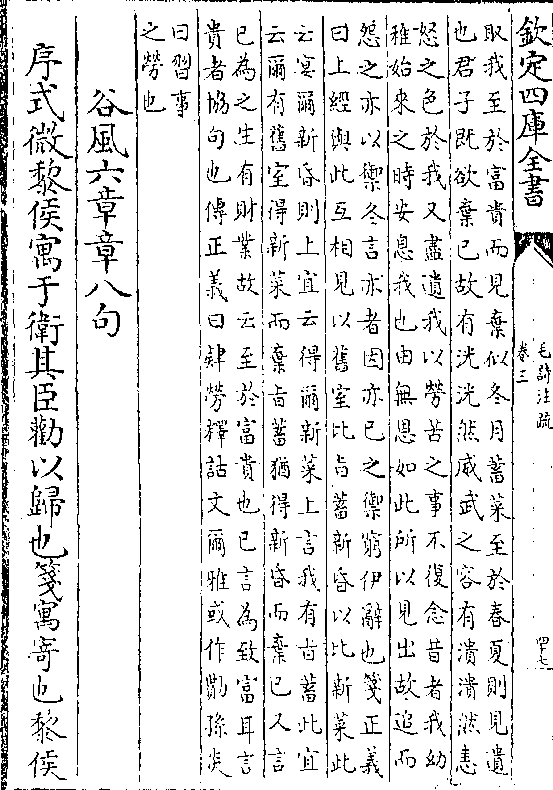 欽定四庫全書
毛詩注疏
卷三
四七
取我至於富貴而見棄似冬月蓄菜至於春夏則見遺
也君子既欲棄已故有洸洸然威武之容有潰潰然恚
怒之色於我又盡遺我以勞苦之事不復念昔者我幼
稚始來之時安息我也由無恩如此所以見出故追而
怨之亦以禦冬言亦者因亦已之禦窮伊辭也箋正義
曰上經與此互相見以舊室比旨蓄新昏以比新菜此
云宴爾新昏則上宜云得爾新菜上言我有旨蓄此宜
云爾有舊室得新菜而棄旨蓄猶得新昏而棄已又言
已為之生有財業故云至於富貴也已言為致富耳言
貴者協句也傳正義曰肄勞釋詁文爾雅或作勩孫炎
曰習事
之勞也
谷風六章章八句
序式微黎侯寓于衛其臣勸以歸也箋寓寄也黎侯